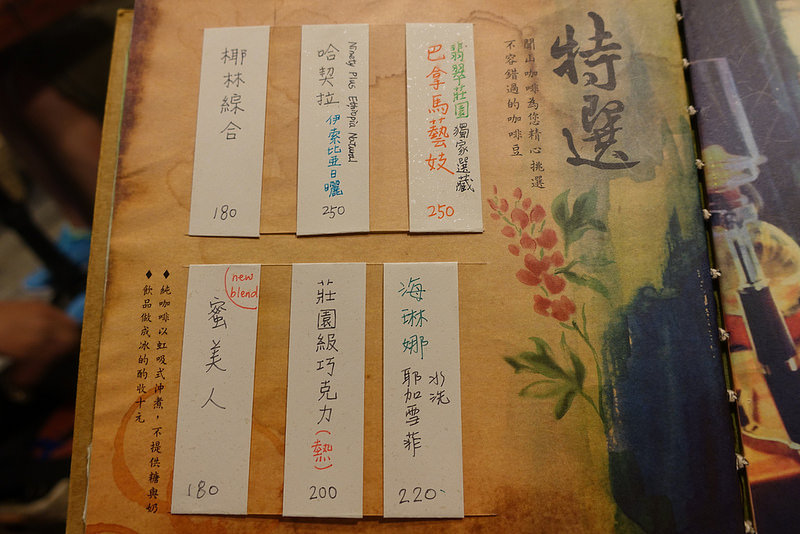 特選
開山咖啡為您精心挑選
不容錯過的咖啡豆
翡翠莊園 獨家選藏
巴拿馬藝妓
250
Ninety Plus Ethiopia Natural
哈契拉 伊索比亞日曬
250
椰林綜合
180
海琳娜 水洗
耶加雪菲
220
莊園級巧克力(熱)
200
new
blend
蜜美人
180
♦ 純咖啡以虹吸式沖煮，不提供糖與奶
♦ 飲品做成冰的酌收十元